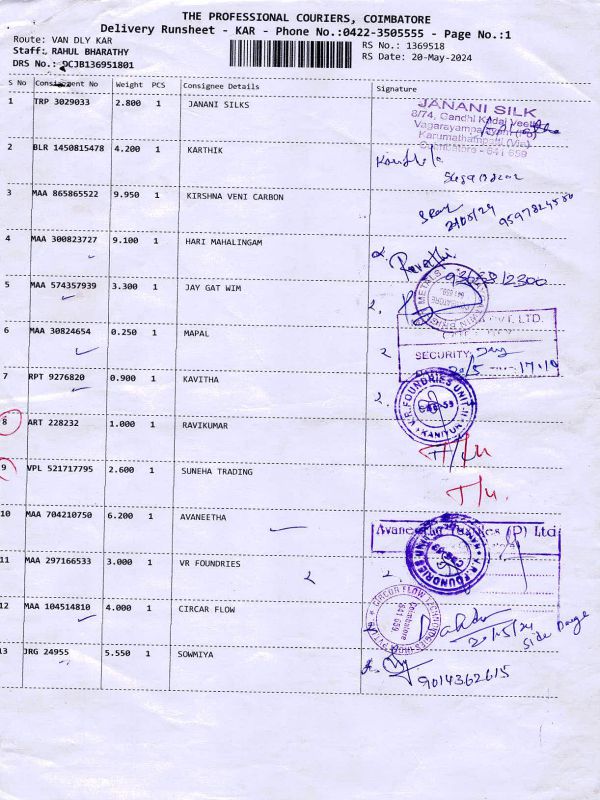 THE PROFESSIONAL COURIERS, COIMBATORE
Delivery Runsheet - KAR - Phone No.:0422-3505555 - Page No.:1
Route: VAN DLY KAR
RS No.: 1369518
Staff: RAHUL BHARATHY
RS Date: 20-May-2024
DRS No.: DCJB136951801
S No Consignment No Weight PCS Consignee Details Signature
1 TRP 3029033 2.800 1 JANANI SILKS
JANANI SILK
8/74, Gandhi Kadai Veethi
Coimbatore - 641 659
2 BLR 1450815478 4.200 1 KARTHIK
3 MAA 865865522 9.950 1 KIRSHNA VENI CARBON
4 MAA 300823727 9.100 1 HARI MAHALINGAM
Revathi
5 MAA 574357939 3.300 1 JAY GAT WIM
2.
6 MAA 30824654 0.250 1 MAPAL
2
VT. LTD.
SECURITY
7 RPT 9276820 0.900 1 KAVITHA
2.
K.R.FOUNDRIES UNIT-II
8 ART 228232 1.000 1 RAVIKUMAR
9 VPL 521717795 2.600 1 SUNEHA TRADING
10 MAA 704210750 6.200 1 AVANEETHA
(P) Ltd
11 MAA 297166533 3.000 1 VR FOUNDRIES
2 2.
V.R.FOUNDRIES
12 MAA 104514810 4.000 1 CIRCAR FLOW
CIRCOR FLOW TECHNOLOGIES
Coimbatore
641 659
13 JRG 24955 5.550 1 SOWMIYA
9014362615